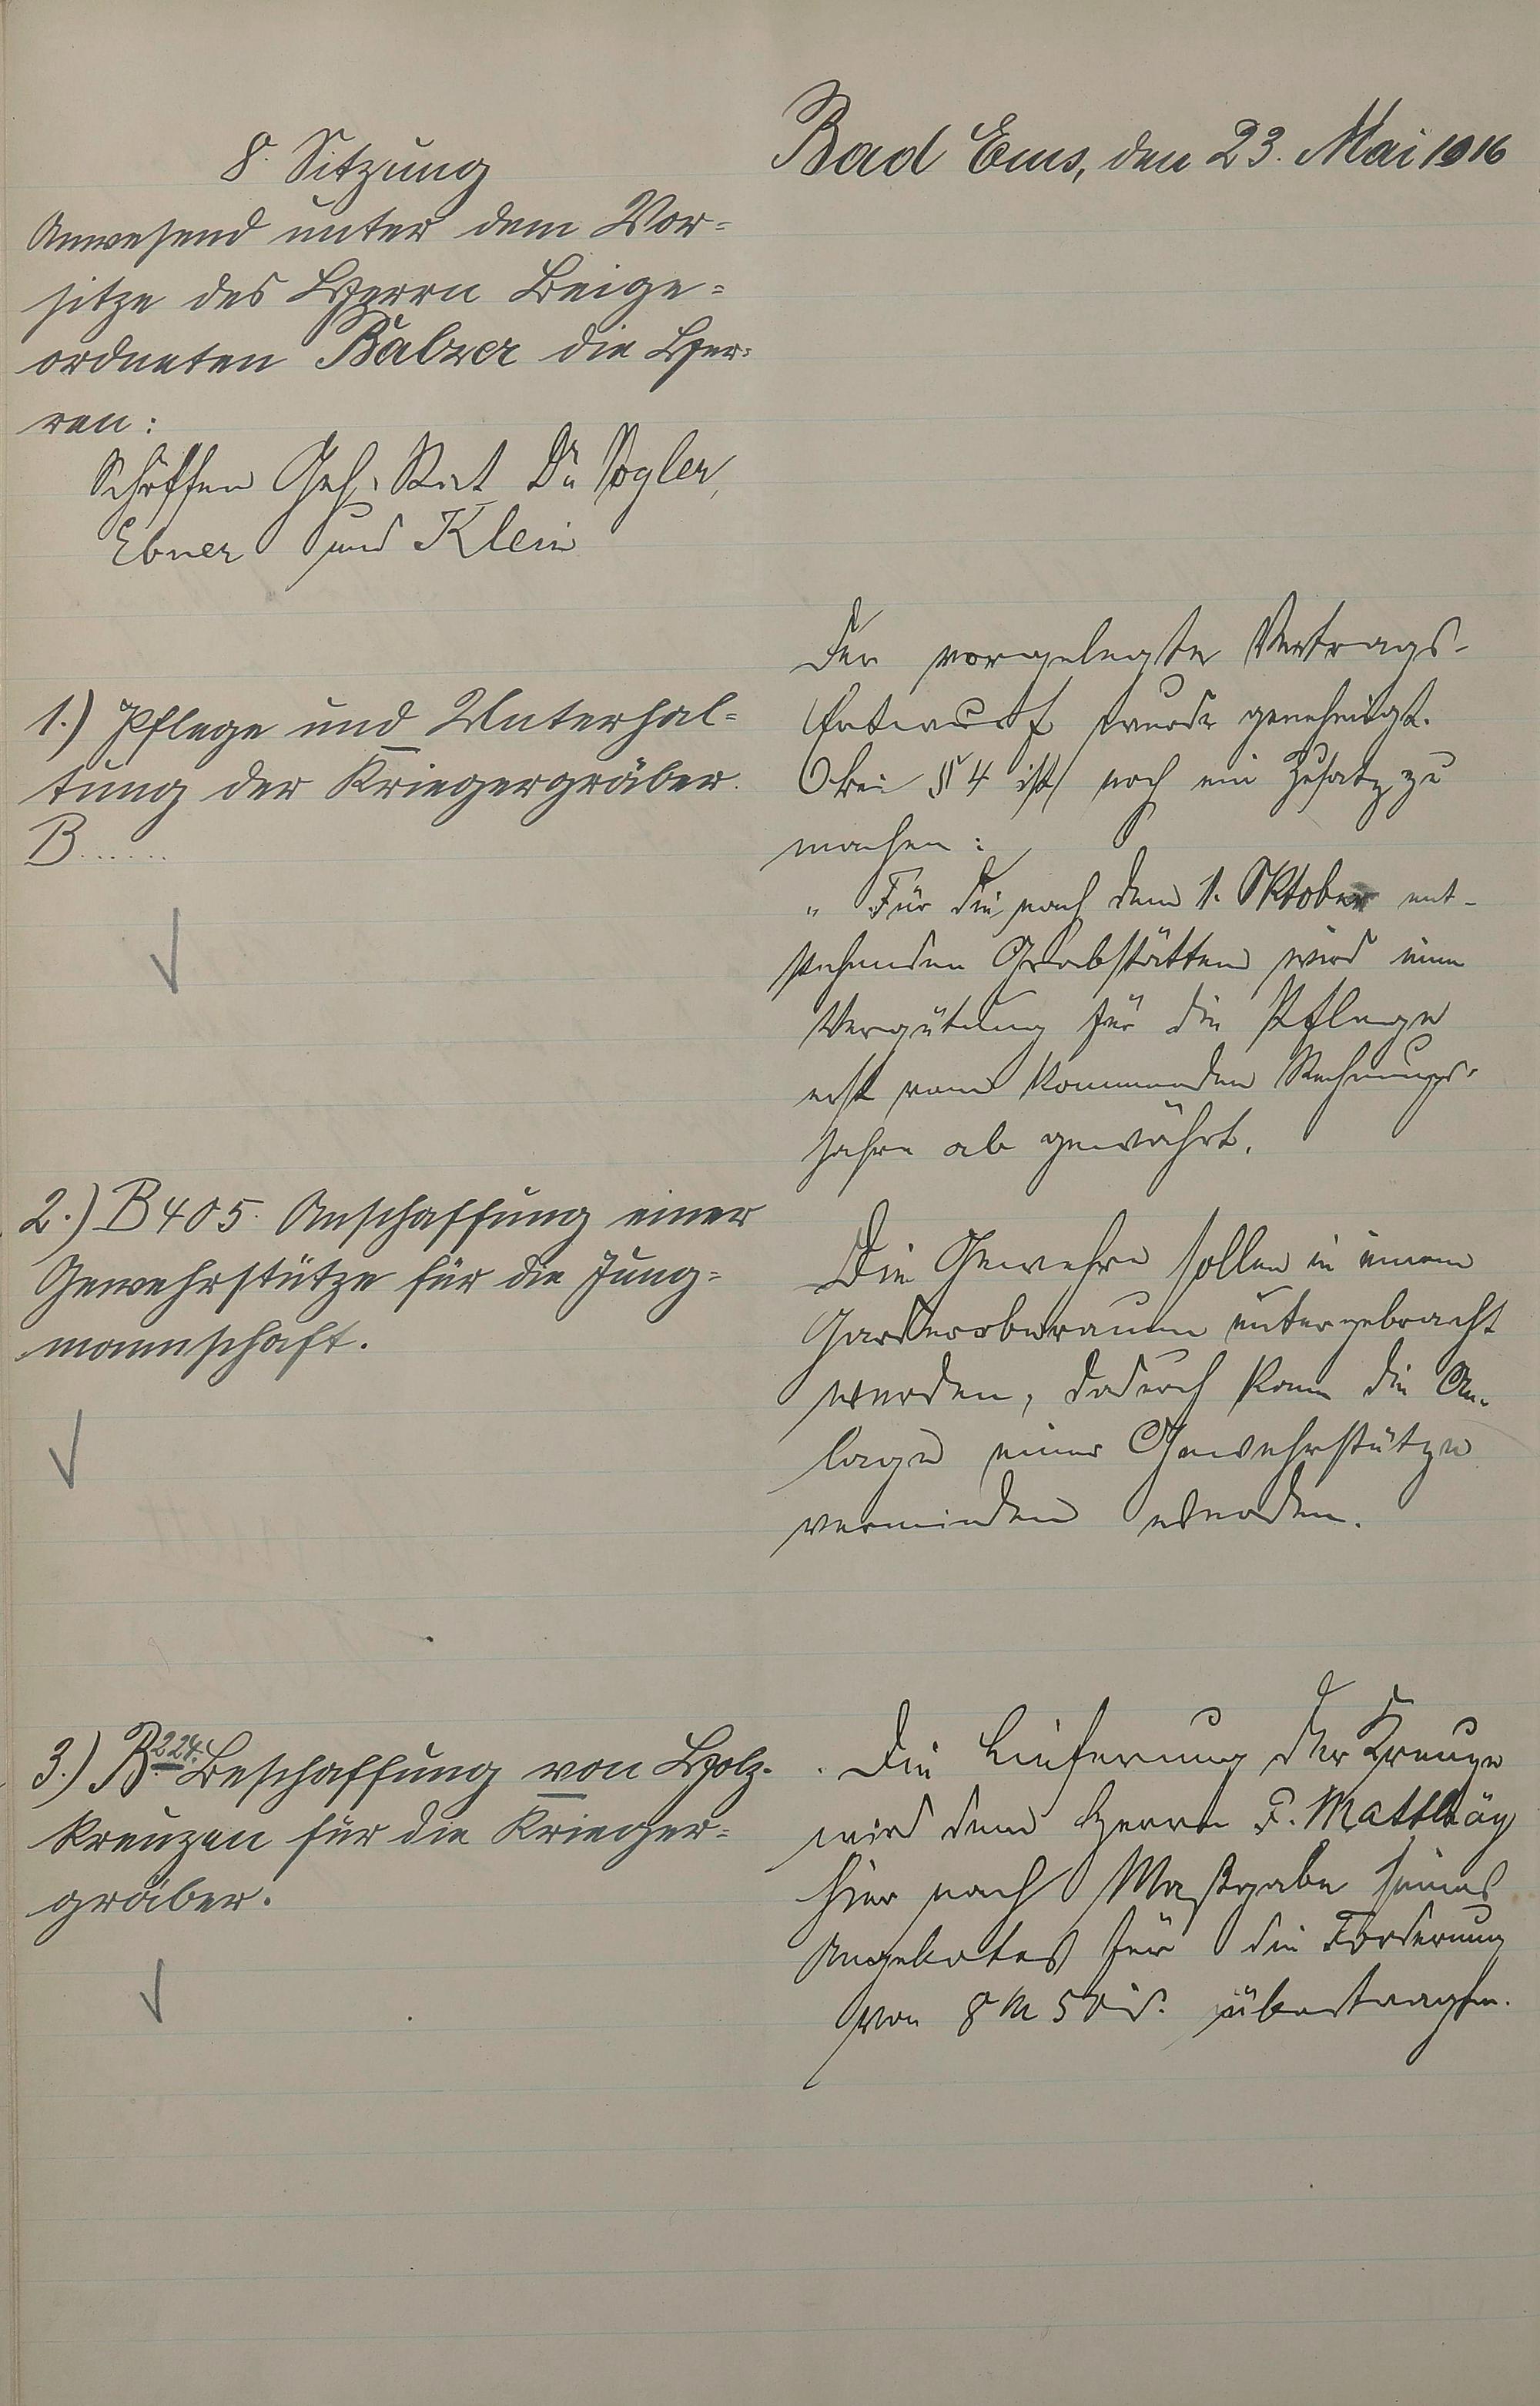 Bad Ems, den 23. Mai 1916
8. Sitzung
Anwesend unter dem Vor=
sitze des Herrn Beige=
ordneten Balzer die Her=
ren:
Schöffen Geh. Rat Dr Vogler,
Ebner und Klein
1.) Pflege und Unterhal=
tung der Kriegergräber.
B......
Der vorgelegte Vertrags-
Entwurf wurde genehmigt.
Bei § 4 ist noch ein Zusatz zu
machen:
„ Für die nach dem 1. Oktober ent-
stehenden Grabstätten wird eine
Vergütung für die Pflege
erst vom kommenden Rechnungs-
jahre ab gewährt.
2.) B 405. Anschaffung einer
Gewehrstütze für die Jung=
mannschaft.
Die Gewehre sollen in einem
Garderoberaum untergebracht
werden, dadurch kann die An-
lage einer Gewehrstütze
vermieden werden.
3.) B 224. Beschaffung von Holz-
kreuzen für die Krieger=
gräber.
Die Lieferung der Kreuze
wird dem Herrn F. Matthäy
hier nach Maßgabe seines
Angebotes für die Forderung
von 8 M 50 übertragen.